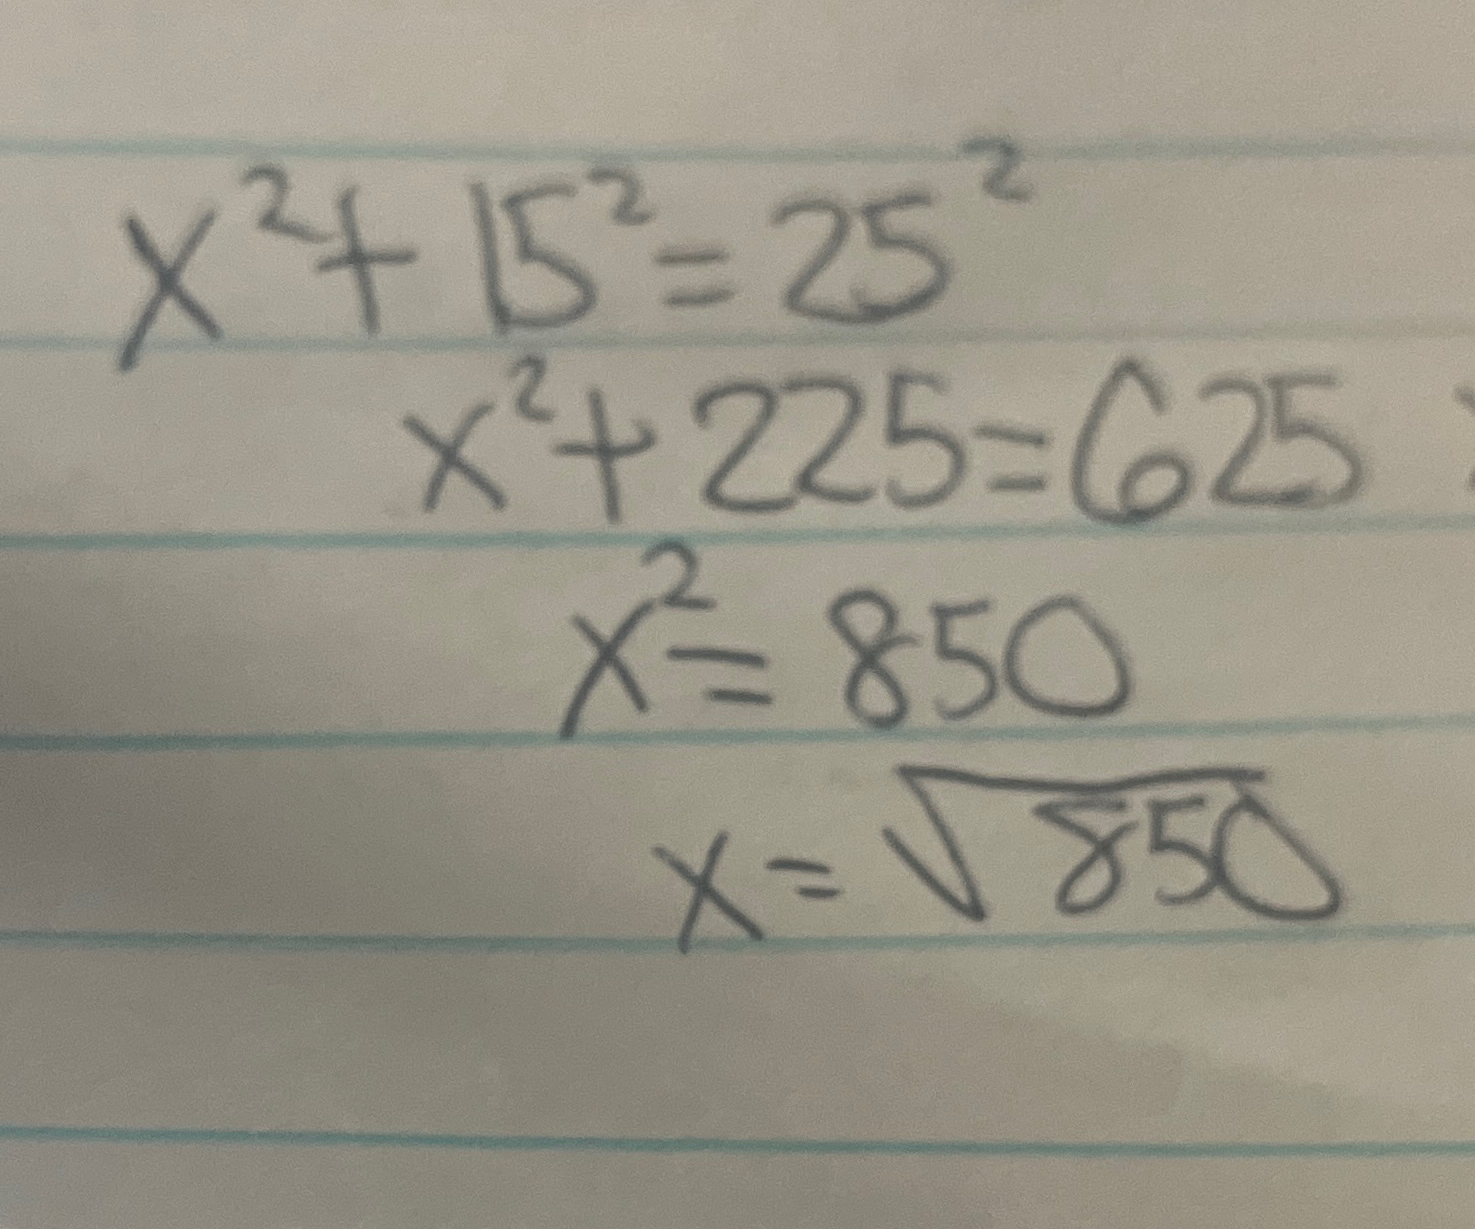 x²+15²=25²
x²+225=625
x²=850
x=√850